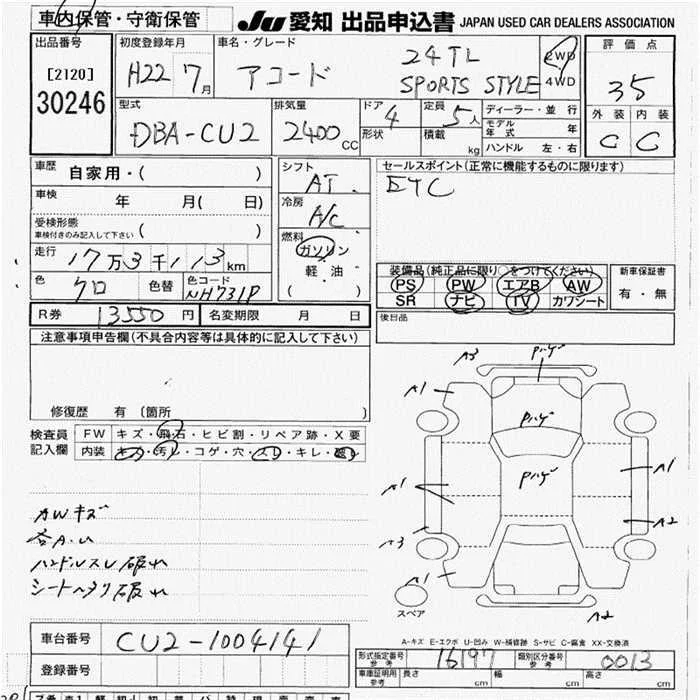 車内保管・守衛保管
JU 愛知 出品申込書 JAPAN USED CAR DEALERS ASSOCIATION
出品番号
[2120]
30246
初度登録年月
H22 7月
車名・グレード
アコード
24TL
SPORTS STYLE
2WD
4WD
評価点
3.5
外装 内装
C C
型式
DBA-CU2
排気量
2400cc
ドア 4
形状
定員 5人
積載 kg
ディーラー・並行
モデル年式 年
ハンドル 左・右
車歴 自家用・( )
車検 年 月( 日)
受検形態
車検付きのみ記入して下さい ( )
走行 17万3千113km
色 クロ 色替 色コード NH731P
シフト
AT
冷房
A/C
燃料
ガソリン
軽油
( )
セールスポイント(正常に機能するものに限ります)
ETC
装備品(純正品に限り○をつけてください)
PS PW エアB AW
SR ナビ TV カワシート
新車保証書
有・無
後日品
R券 13550円 名変期限 月 日
注意事項申告欄(不具合内容等は具体的に記入して下さい)
修復歴 有 (箇所 )
検査員記入欄
FW キズ・飛石・ヒビ割・リペア跡・X要
内装 キズ・汚レ・コゲ・穴・スレ・キレ・
AWキズ
各A.U
ハンドルスレ破れ
シートヘタリ破れ
A3
A1
A1
A3
A1
A1
A2
A2
スペア
A-キズ E-エクボ U-凹み W-補修跡 S-サビ C-腐食 XX-交換済
車台番号 CU2-1004141
登録番号
形式指定番号 参考 16197
類別区分番号 参考 0013
車庫証明用 参考 長さ cm 幅 cm 高さ cm